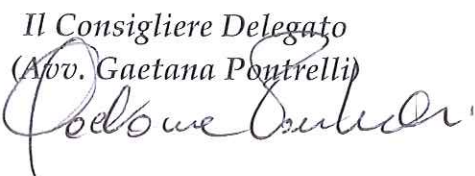 Il Consigliere Delegato
(Avv. Gaetana Pontrelli)